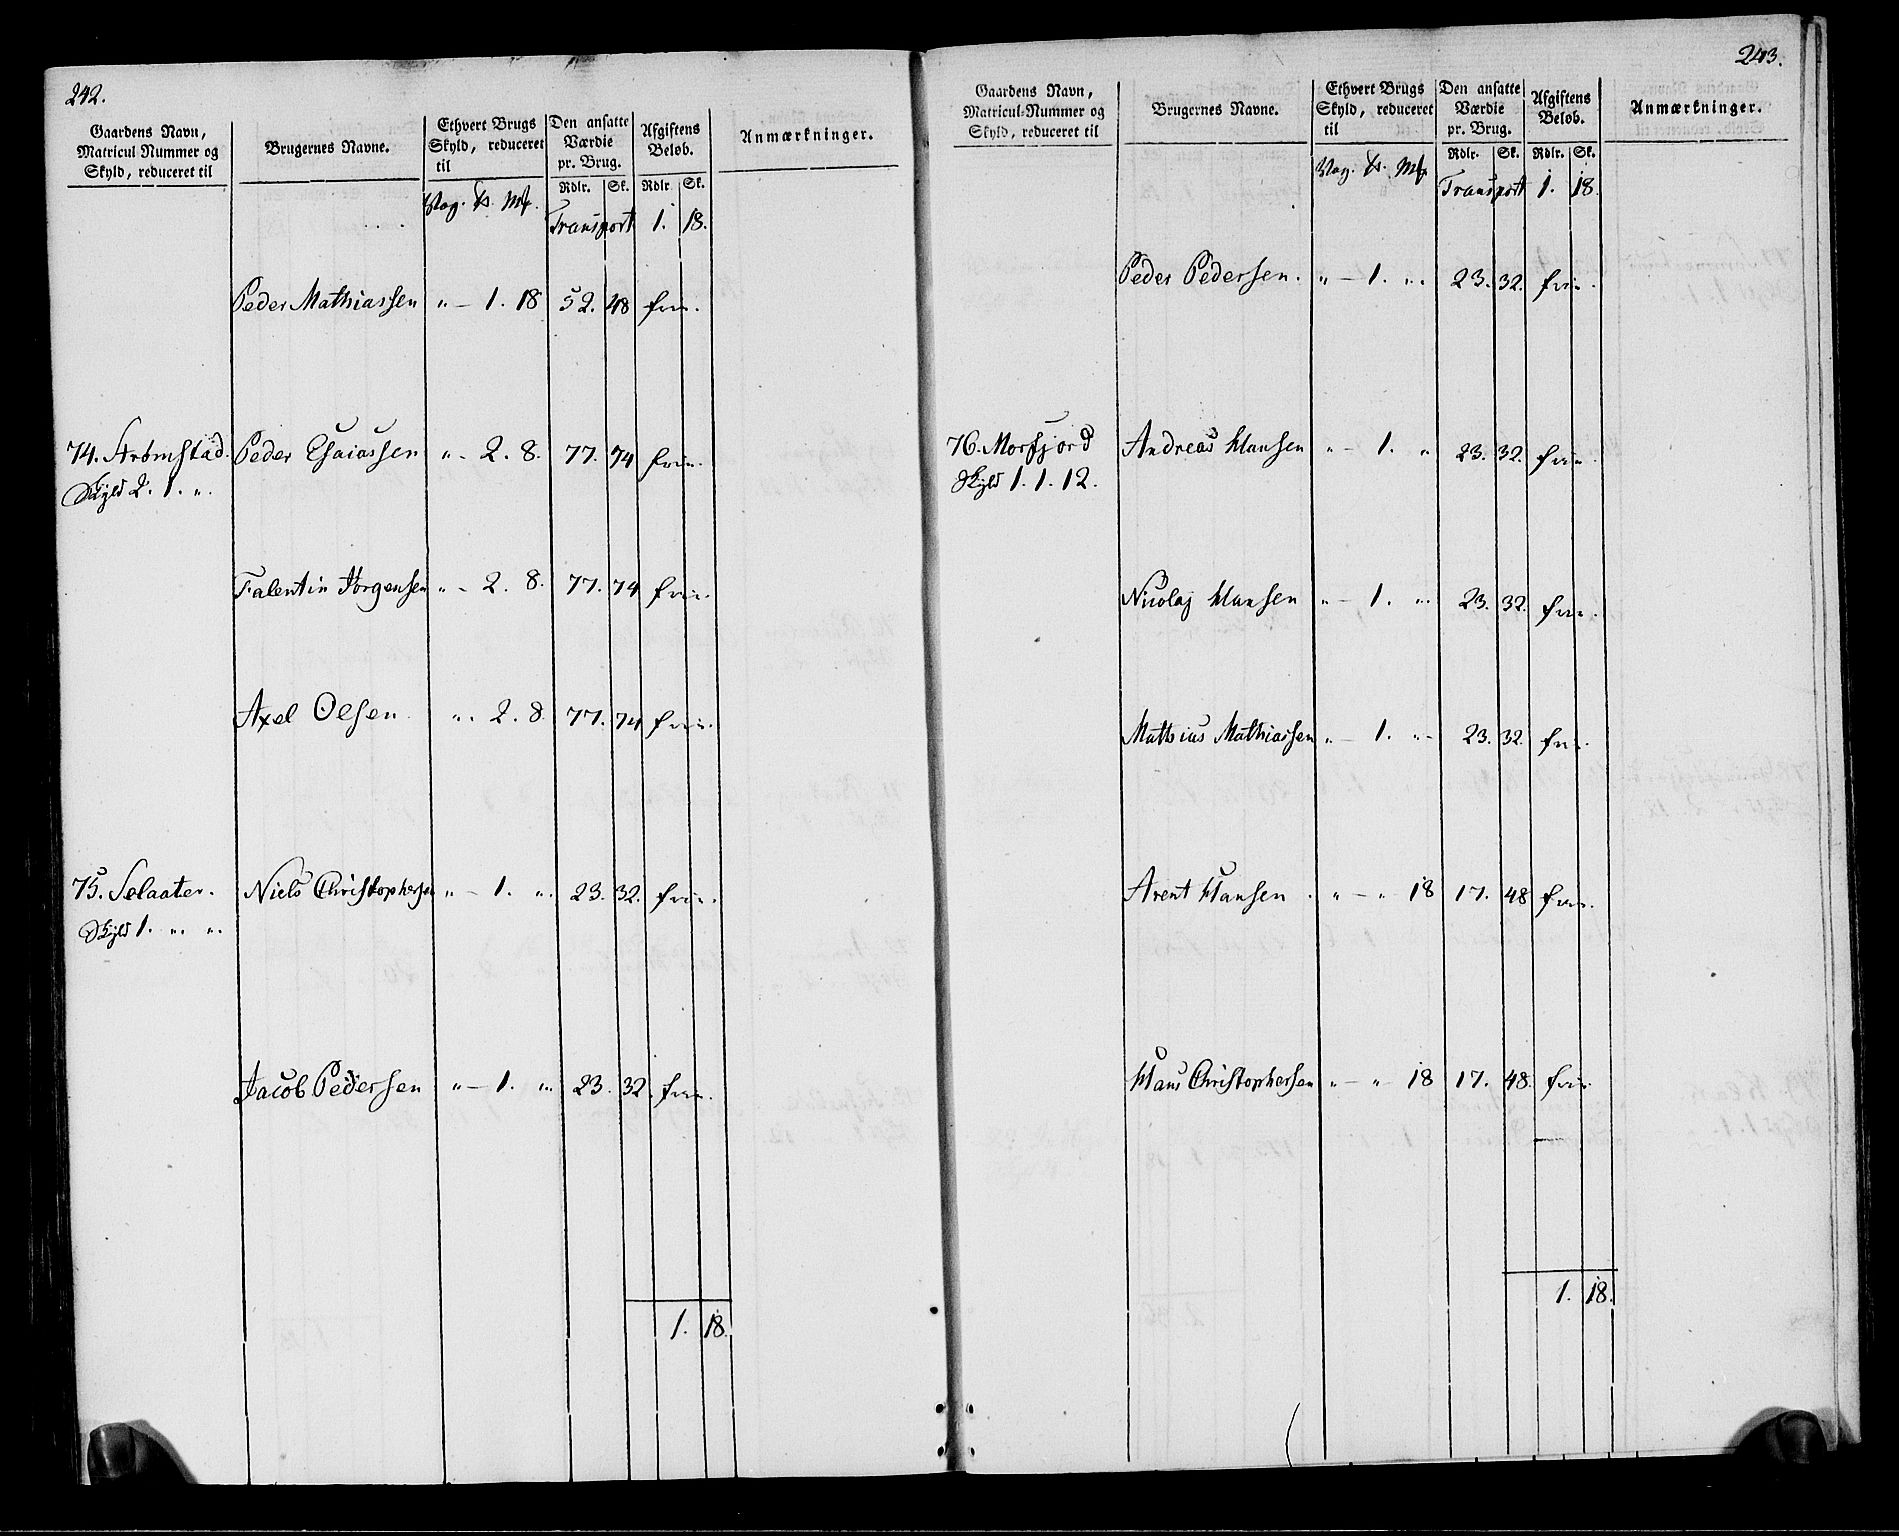 242.
Gaardens Navn, Matricul Nummer og Skyld, reduceret til | Brugernes Navne. | Ethvert Brugs Skyld, reduceret til | Den ansatte Værdie pr. Brug. | Afgiftens Beløb. | Anmærkninger.
Vog. Pd. Mk. | Rdlr. | Sk. | Rdlr. | Sk.
Transport 1. 18.
Peder Mathiassen " — 1. 18 52. 48 frie.
74. Strömstad. Peder Esaiassen " - 2. 8. 77. 74 frie.
Skyld 2. 1. ".
Falentin Jörgensen " - 2. 8. 77. 74 frie.
Axel Olsen ". 2. 8 77. 74 frie.
75. Selaater. Niels Christophersen " — 1. ". 23. 32. frie.
Skyld 1. " "
Jacob Pedersen " — 1. " 23. 32. frie.
1. 18.
243.
Gaardens Navn, Matricul-Nummer og Skyld, reduceret til | Brugernes Navne. | Ethvert Brugs Skyld, reduceret til | Den ansatte Værdie pr. Brug. | Afgiftens Beløb. | Anmærkninger.
Vog. Pd. Mk. | Rdlr. | Sk. | Rdlr. | Sk.
Transport 1. 18.
Peder Pedersen. " — 1. " 23. 32. frie.
76. Morfjord Andreas Hansen " - 1. " 23. 32. frie.
Skyld 1. 1. 12.
Nicolaj Hansen " — 1. " 23. 32. frie.
Mathias Mathiassen " — 1. " 23. 32. frie.
Arent Hansen. " — " 18 17. 48 frie.
Hans Christophersen " — " 18 17. 48. frie
1. 18.